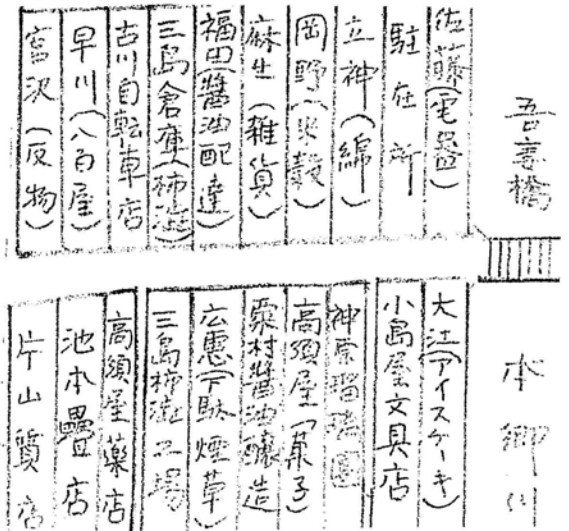 吾妻橋
佐藤(電器)
駐在所
立神(綿)
岡野(米穀)
麻生(雑貨)
福田(醤油配達)
三島倉庫(柿渋)
古川自転車店
早川(八百屋)
宮沢(反物)
本郷川
大江(アイスケーキ)
小島屋文具店
神原瑠璃園
高須屋(菓子)
粟村醤油醸造
広恵(下駄煙草)
三島柿渋工場
高須屋薬店
池本畳店
片山質店